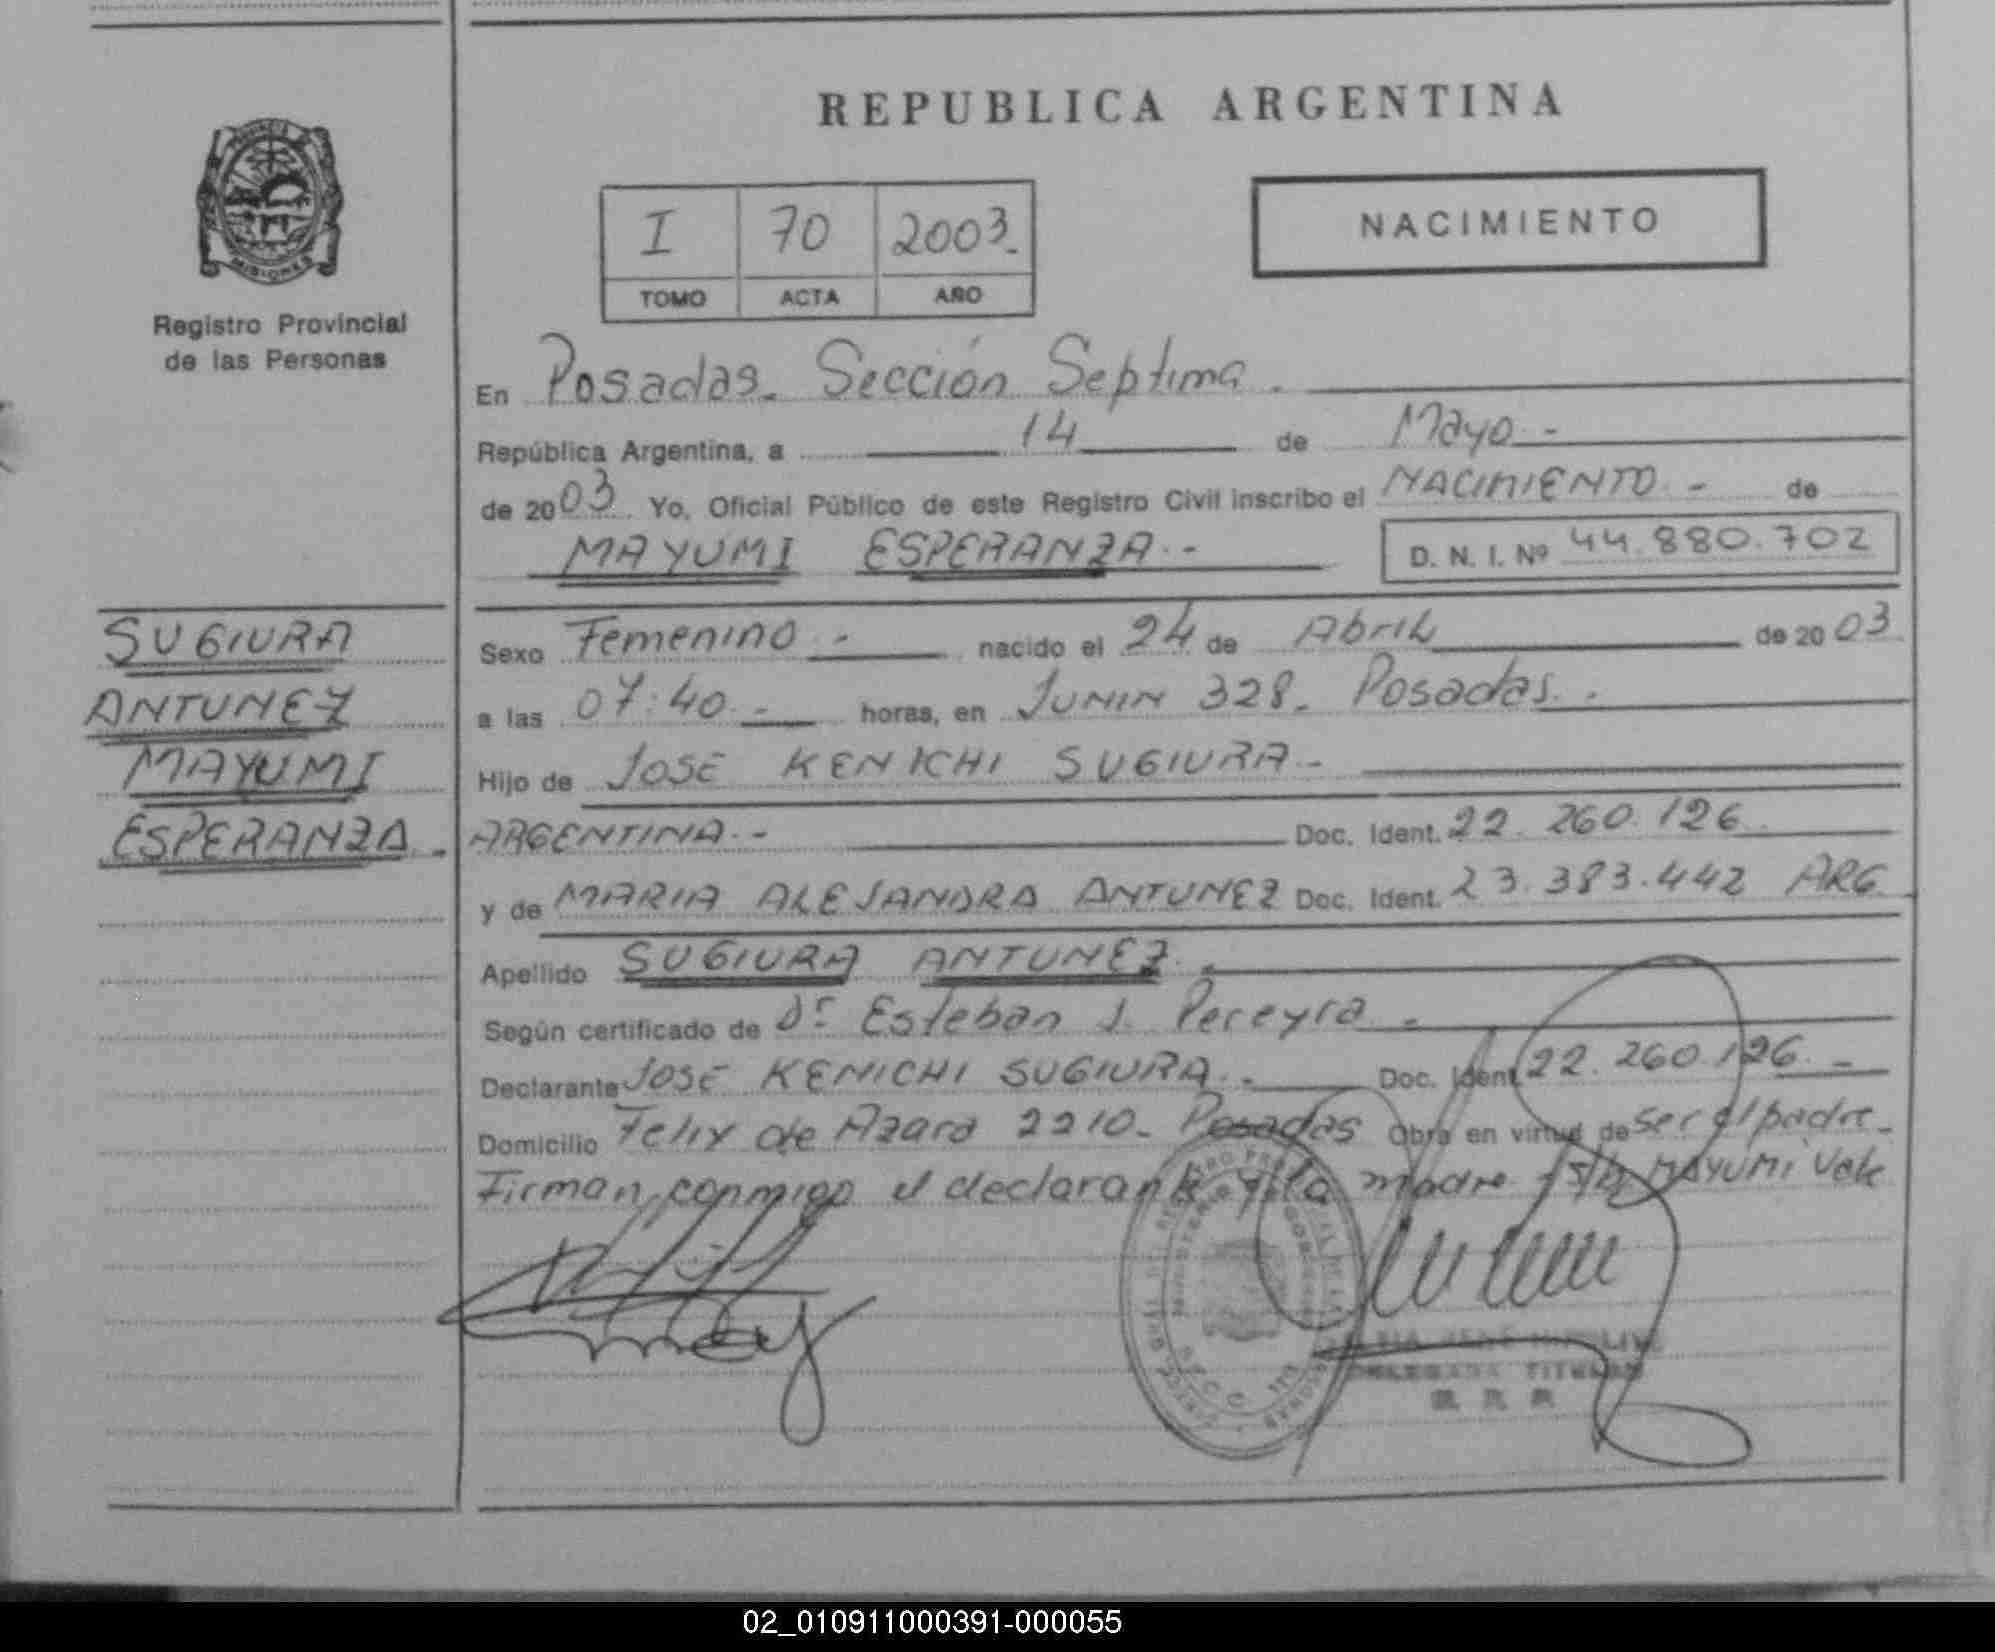 REPUBLICA ARGENTINA
MISIONES
Registro Provincial
de las Personas
I 70 2003.
TOMO ACTA AÑO
NACIMIENTO
En Posadas. Sección Septima.
República Argentina, a 14 de Mayo.-
de 2003. Yo, Oficial Público de este Registro Civil inscribo el NACIMIENTO.- de
MAYUMI ESPERANZA.- D. N. I. Nº 44.880.702
SUGIURA
ANTUNEZ
MAYUMI
ESPERANZA.
Sexo Femenino.- nacido el 24 de Abril de 2003
a las 07:40.- horas, en JUNIN 328. Posadas.-
Hijo de JOSE KENICHI SUGIURA.-
ARGENTINA.- Doc. Ident. 22.260.126
y de MARIA ALEJANDRA ANTUNEZ Doc. Ident. 23.383.442 ARG.
Apellido SUGIURA ANTUNEZ.
Según certificado de Dr Esteban J. Pereyra.-
Declarante JOSE KENICHI SUGIURA.- Doc. Ident. 22.260.126.-
Domicilio Felix de Azara 2210. Posadas Obra en virtud de ser el padre.
Firman conmigo el declarante y la madre. s/b MAYUMI Vale
DELEGADA TITULAR
02_010911000391-000055